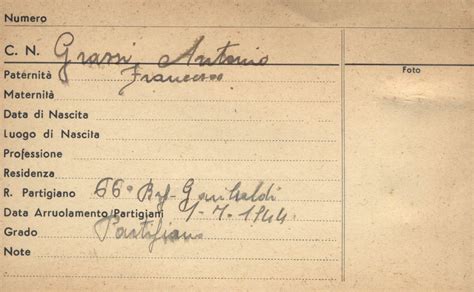 Numero
C. N. Grassi Antonio
Foto
Paternità Francesco
Maternità
Data di Nascita
Luogo di Nascita
Professione
Residenza
R. Partigiano 66ª Brg. Garibaldi
Data Arruolamento Partigiani 1-7-1944
Grado Partigiano
Note